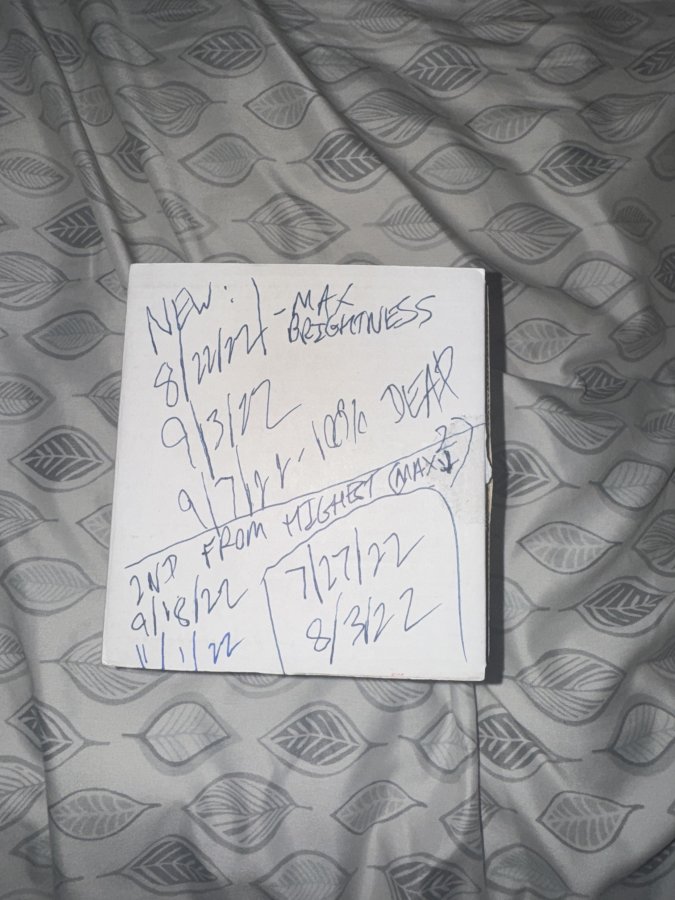 NEW:
8/22/22 - MAX
BRIGHTNESS
9/3/22
9/7/22 - 100% DEAD
2ND FROM HIGHEST (MAX
9/18/22
11/1/22
7/27/22
8/3/22